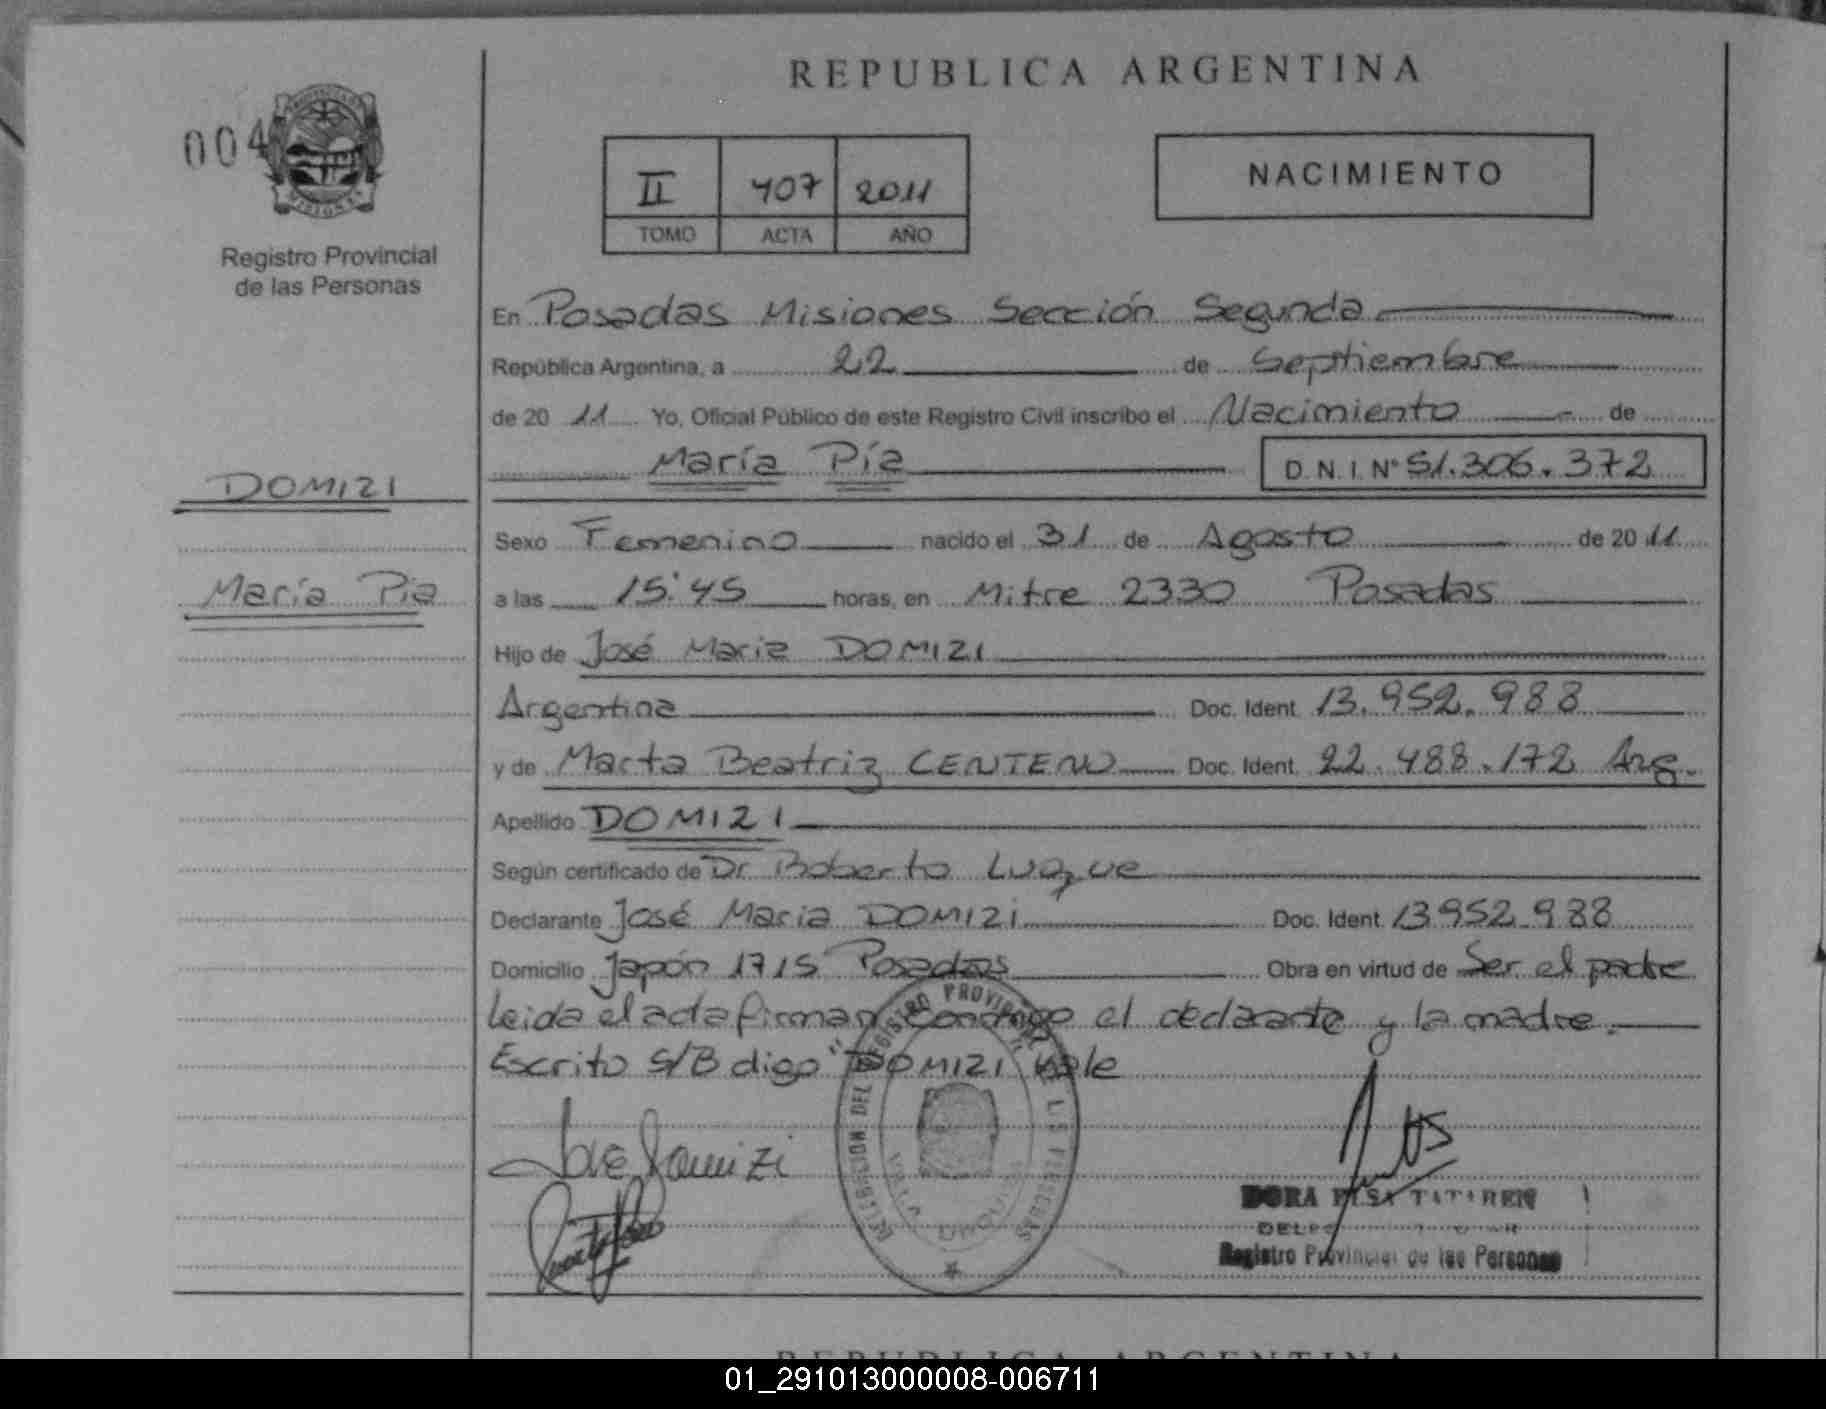 REPUBLICA ARGENTINA
004
II 407 2011
TOMO ACTA AÑO
NACIMIENTO
Registro Provincial
de las Personas
En Posadas Misiones Sección Segunda
República Argentina, a 22 de Septiembre
de 20 11 Yo, Oficial Público de este Registro Civil inscribo el Nacimiento de
María Pía D.N.I. Nº 51.306.372
DOMIZI
María Pía
Sexo Femenino nacido el 31 de Agosto de 20 11
a las 15:45 horas, en Mitre 2330 Posadas
Hijo de José Maria DOMIZI
Argentina Doc. Ident. 13.952.988
y de Marta Beatriz CENTENO Doc. Ident. 22.488.172 Arg.
Apellido DOMIZI
Según certificado de Dr. Roberto Luque
Declarante José Maria DOMIZI Doc. Ident. 13952.988
Domicilio Japón 1715 Posadas Obra en virtud de Ser el padre
Leida el acta firman conmigo el declarante y la madre.
Escrito S/B digo "DOMIZI" Vale
DELEGACION DEL REGISTRO PROVINCIAL DE LAS PERSONAS
Jose Domizi
DORA ELSA
Registro Provincial de las Personas
REPUBLICA ARGENTINA
01_291013000008-006711